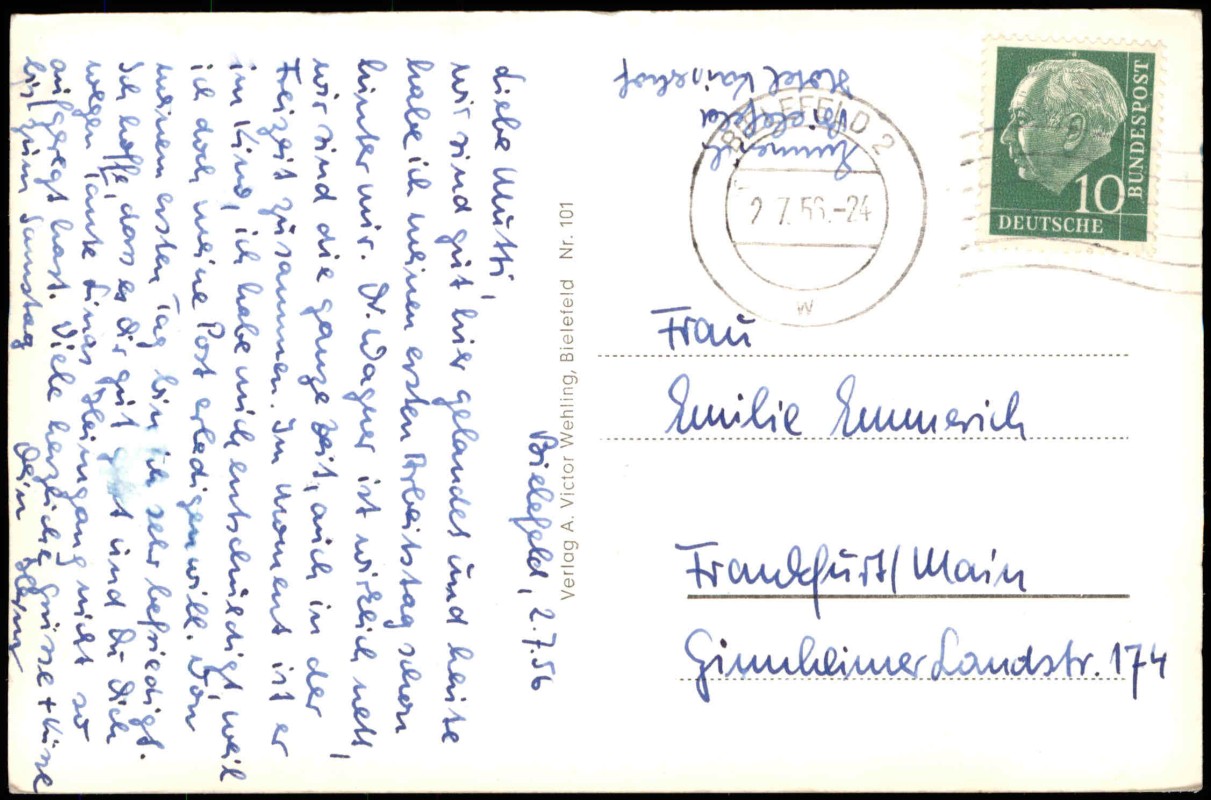 Bielefeld, 2.7.56
Liebe Mutti,
wir sind gut hier gelandet und heute
habe ich meinen ersten Arbeitstag schon
hinter mir. Dr. Wagner ist wirklich nett,
wir sind die ganze Zeit, auch in der
Freizeit zusammen. Im Moment ist er
im Kino, ich habe mich entschuldigt, weil
ich doch meine Post erledigen will. Von
meinem ersten Tag bin ich sehr befriedigt.
Ich hoffe, dass es dir gut geht und Du dich
wegen Tante Linas Heimgang nicht so
aufgeregt hast. Viele herzliche Grüsse + Küsse
bis zum Samstag Dein Heinz
Verlag A. Victor Wehling, Bielefeld Nr. 101
Emmerich
Bielefeld
Hotel Kaiserhof
BIELEFELD 2
2.7.56.-24
w
10
DEUTSCHE
BUNDESPOST
Frau
Emilie Emmerich
Frankfurt/Main
Ginnheimer Landstr. 174